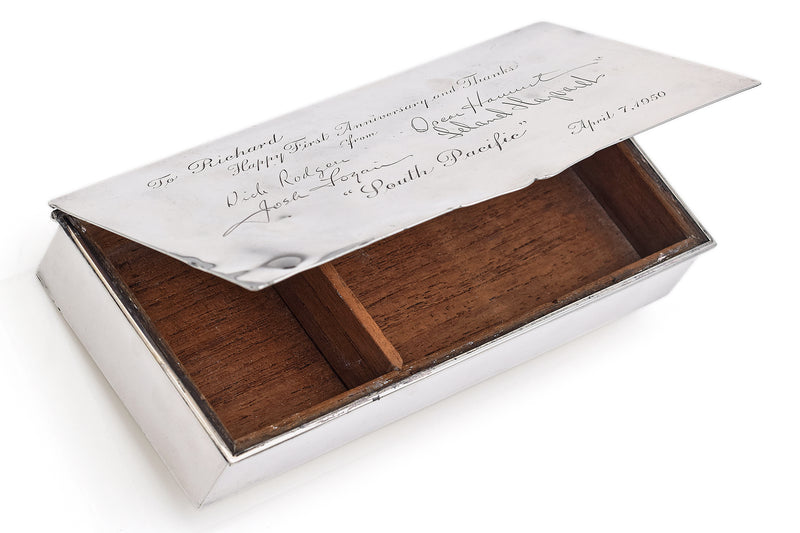 To Richard
Happy First Anniversary and Thanks
from
Dick Rodgers Oscar Hammerst
Josh Logan Leland Hayward
"South Pacific"
April 7, 1950